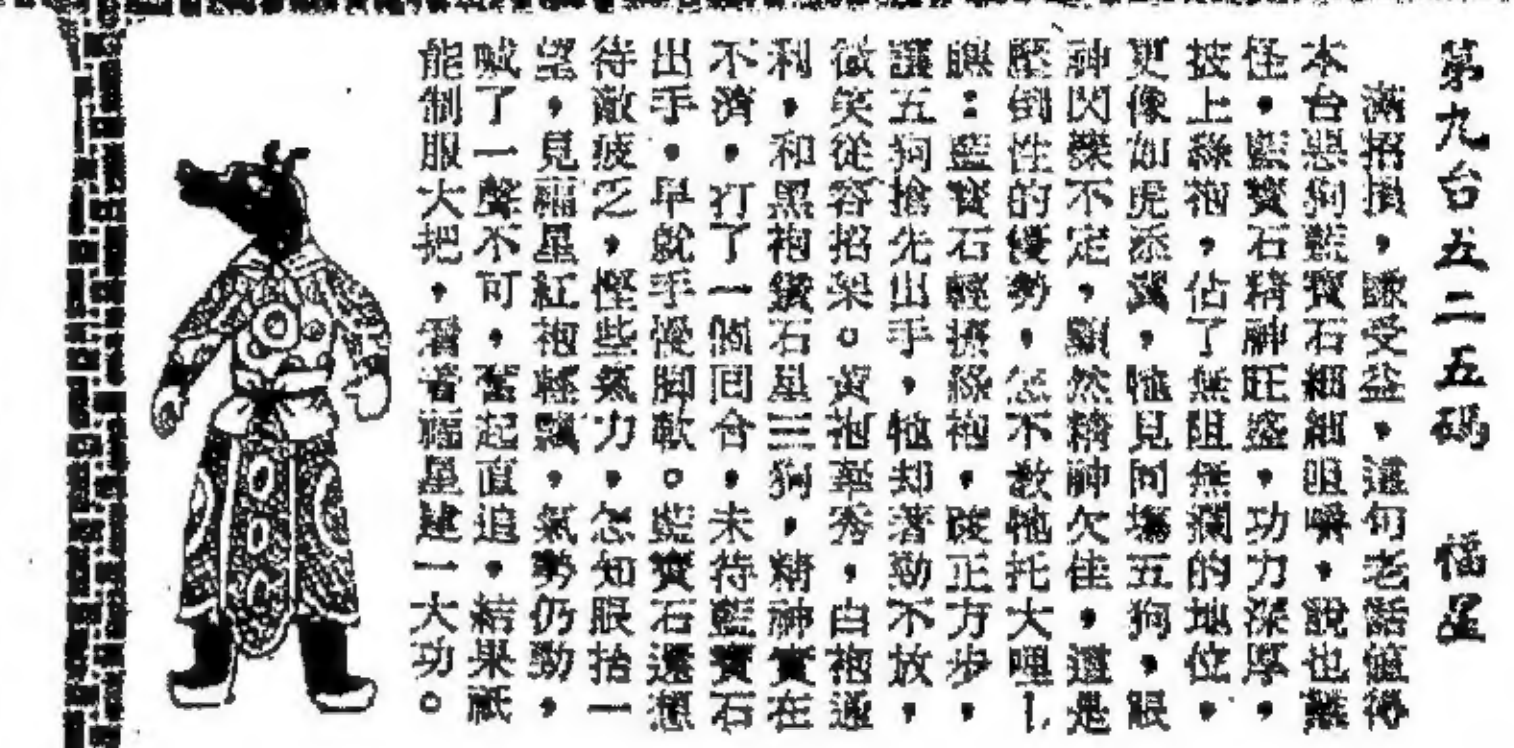 第九台五二五碼　福星
滿招損，謙受益，這句老話值得
本台惡狗藍寶石細細咀嚼，說也難
怪，藍寶石精神旺盛，功力深厚，
披上綠袍，佔了無阻無攔的地位，
更像如虎添翼，牠見同場五狗，眼
神閃爍不定，顯然精神欠佳，這是
壓倒性的優勢，怎不教牠托大哩！
瞧：藍寶石輕擠綠袍，踱正方步，
讓五狗搶先出手，牠却著勁不放，
微笑從容招架。黃袍寒秀，白袍通
利，和黑袍鑽石星三狗，精神實在
不濟，打了一個回合，未待藍寶石
出手，早就手慢脚軟。藍寶石還想
待敵疲乏，慳些氣力，怎知眼抬一
望，見福星紅袍輕飄，氣勢仍勁，
喊了一聲不可，奮起直追，結果祇
能制服大把，看着福星建一大功。